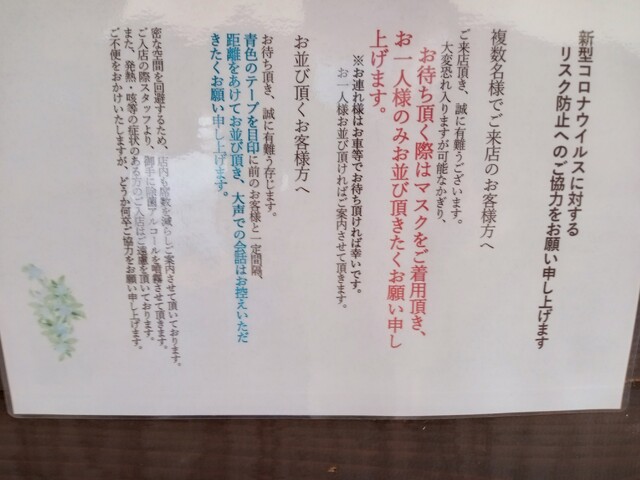 新型コロナウイルスに対する
リスク防止へのご協力をお願い申し上げます
複数名様でご来店のお客様方へ
ご来店頂き、誠に有難うございます。
大変恐れ入りますが可能なかぎり、
お待ち頂く際はマスクをご着用頂き、
お一人様のみお並び頂きたくお願い申し
上げます。
※お連れ様はお車等でお待ち頂ければ幸いです。
お一人様お並び頂ければご案内させて頂きます。
お並び頂くお客様方へ
お待ち頂き、誠に有難う存じます。
青色のテープを目印に前のお客様と一定間隔、
距離をあけてお並び頂き、大声での会話はお控えいただ
きたくお願い申し上げます。
密な空間を回避するため、店内も席数を減らしご案内させて頂いております。
ご入店の際スタッフより、御手に除菌アルコールを噴霧させて頂きます。
また、発熱・咳等の症状のある方のご入店はご遠慮を頂いております。
ご不便をおかけいたしますが、どうか何卒ご協力をお願い申し上げます。